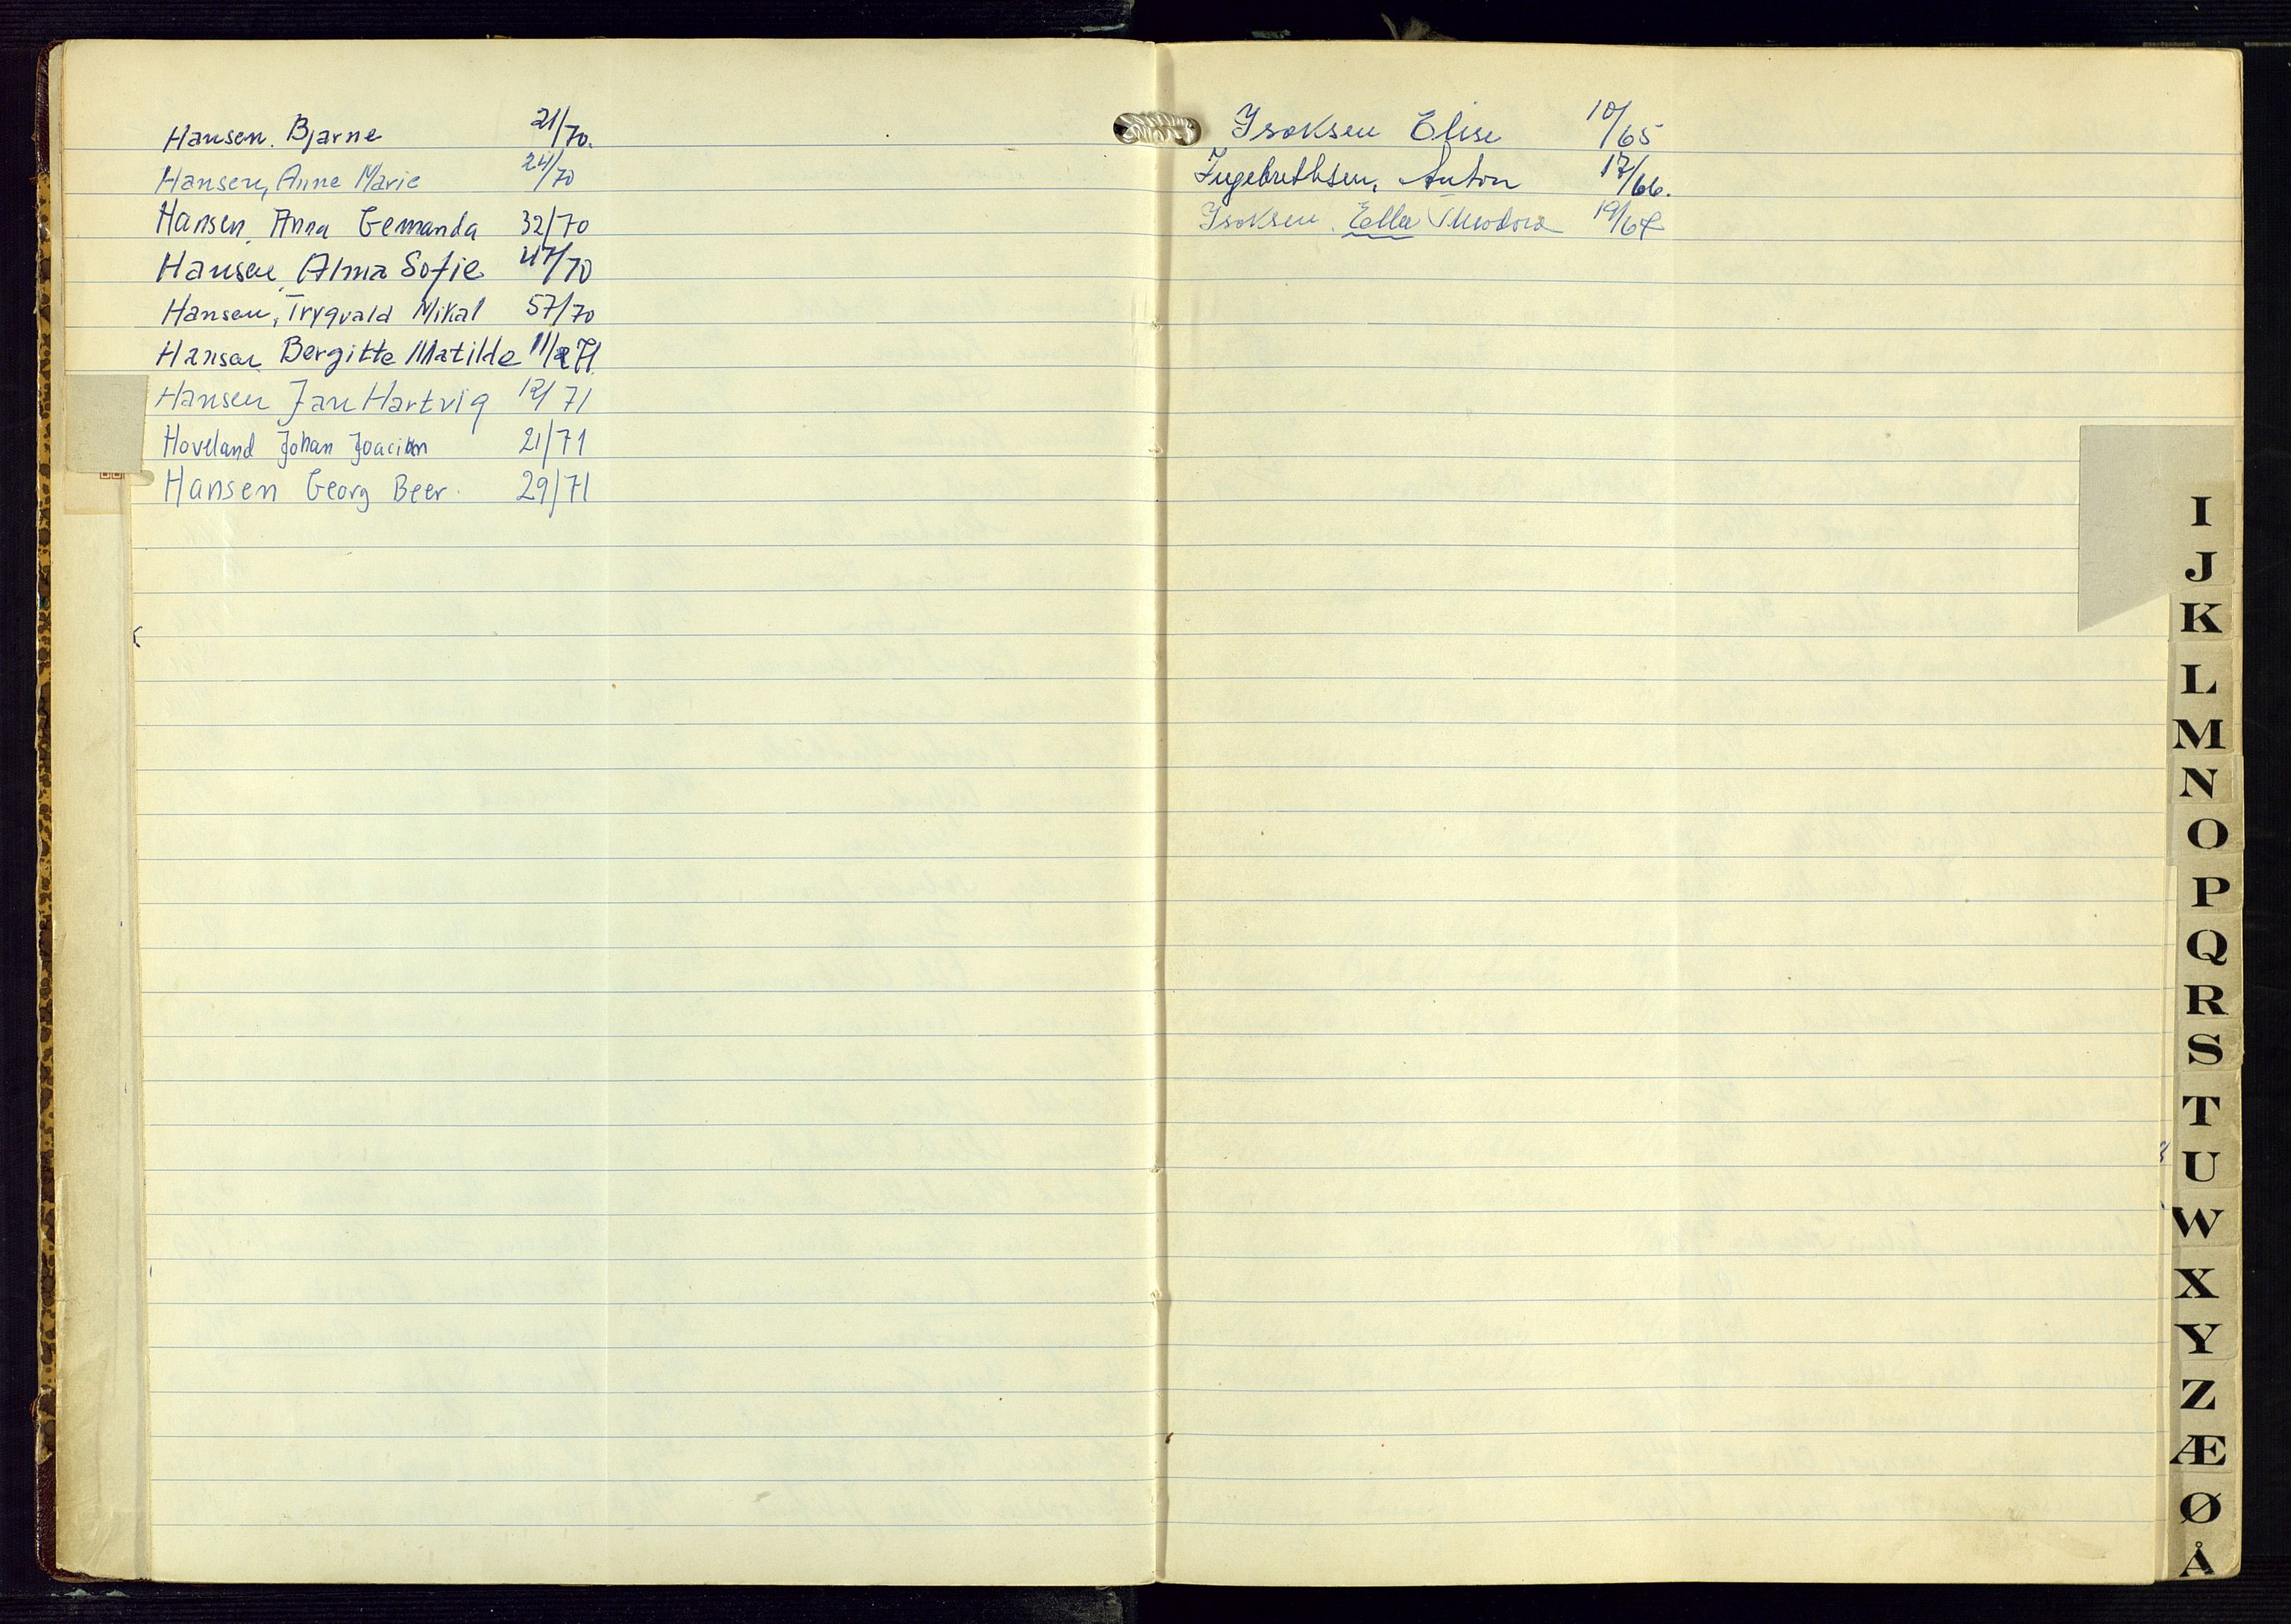 Hansen. Bjarne 21/70.
Hansen, Anne Marie 24/70
Hansen, Anna Gemanda 32/70
Hansen, Alma Sofie 47/70
Hansen, Trygvald Mikal 57/70
Hansen Bergitte Matilde 11/71
Hansen Jan Hartvig 12/71
Hoveland Johan Joacim 21/71
Hansen Georg Beer. 29/71
Isaksen Elise 10/65
Ingebrethsen, Anton 17/66.
Isaksen. Ella Theodora 19/67
I
J
K
L
M
N
O
P
Q
R
S
T
U
W
X
Y
Z
Æ
Ø
Å